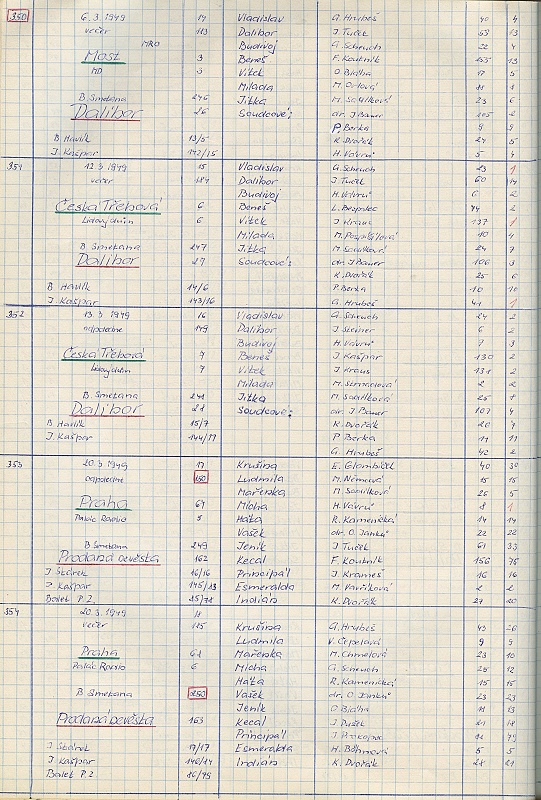 350 6.3.1949 14 Vladislav G. Hrubeš 40 4
večer 113 Dalibor J Tuček 59 13
MRO Budivoj G. Scheuch 22 4
Most 3 Beneš F. Koutník 13
MD 3 Vítek O Blaťha 17 5
Milada M. Ortová 11 1
B. Smetana 246 Jitka M. Samlíková 23 6
Dalibor 26 Soudcové: dr. J Bauer 105 2
P Berka 9 9
B. Havlík 13/5 K. Dvořák 24 5
J. Kašpar 142/15 H. Vávrů 5 4
351 12.3 1949 15 Vladislav G. Scheuch 23 1
večer Dalibor J Tuček 60 14
Budivoj H. Vávrů 6 2
Česká Třebová 6 Beneš L. Bezpalec 74 2
Lidový dům 6 Vítek J Kraus 137 1
Milada M. Pospíšilová 10 4
B. Smetana 247 Jitka M. Samlíková 24 7
Dalibor 27 Soudcové: dr. J Bauer 106 3
K. Dvořák 25 6
B Havlík 14/6 P. Berka 10 10
J. Kašpar 143/16 G. Hrubeš 41 1
352 13.3 1949 16 Vladislav G. Scheuch 24 2
odpoledne 149 Dalibor J Steiner 6 2
Budivoj H. Vávrů 7 3
Česká Třebová 7 Beneš J Kašpar 130 2
Lidový dům 7 Vítek J Kraus 131 2
Milada 2 2
B. Smetana 248 Jitka M. Samlíková 25 8
Dalibor 28 Soudcové: dr. J Bauer 107 4
B Havlík 15/7 K. Dvořák 26 7
J. Kašpar 144/17 P Berka 11 11
G. Hrubeš 42 2
353 20.3 1949 17 Krušina E. Glombíček 40 30
odpoledne 150 Ludmila M. Němcová 15 15
Mařenka M. Samlíková 26 5
Praha 67 Mícha H. Vávrů 8 1
Palác Radio 5 Háta R. Kamenická 14 14
Vašek dr. O. Janků 22 22
B Smetana 249 Jeník J Tuček 61 33
Prodaná nevěsta 162 Kecal F. Koutník 156 75
J Skárek 16/16 Principál J. Krameš 16 16
J. Kašpar 145/13 Esmeralda M. Vavříková 2 2
Balet P.Z. 15/78 Indián K. Dvořák 27 20
354 20.3 1949 11 Krušina G. Hrubeš 43 26
večer 115 Ludmila V. Čepelová 9 9
Praha 68 Mařenka M. Chmelová 23 10
Palác Radio 6 Mícha G. Scheuch 25 12
Háta R. Kamenická 15 15
B Smetana 250 Vašek dr. O Janků 23 23
Jeník O Blaťha 18 13
Prodaná nevěsta 163 Kecal J. Dušek 21 18
Principál J Prokopec
J Skárek 17/17 Esmeralda H. Böhmová 5 5
J Kašpar 146/14 Indián K. Dvořák 28 21
Balet P.Z. 16/79